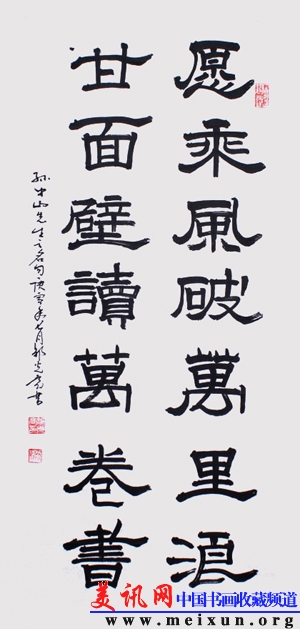 愿乘風破萬里浪
甘面壁讀萬卷書
孫中山先生之名句庚寅年七月
美讯网
中国书画收藏频道
www.meixun.org